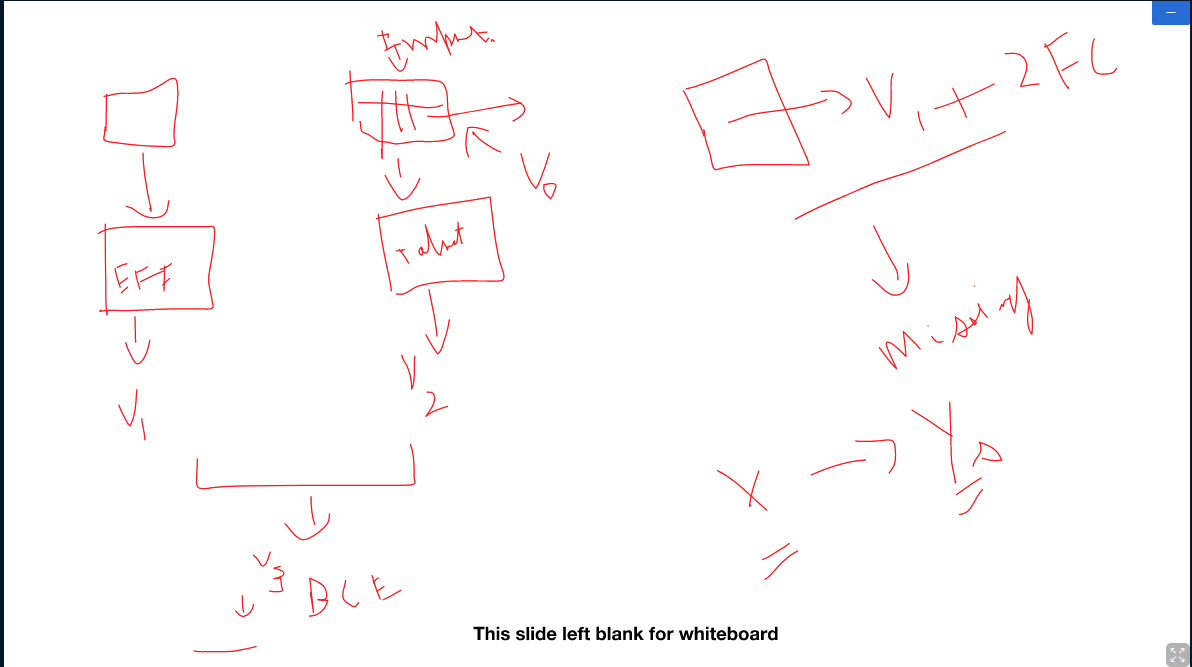 Input.
V0
EFF
Tabnet
V1
V2
V3
BCE
V1 + 2FC
missing
X → Y
This slide left blank for whiteboard